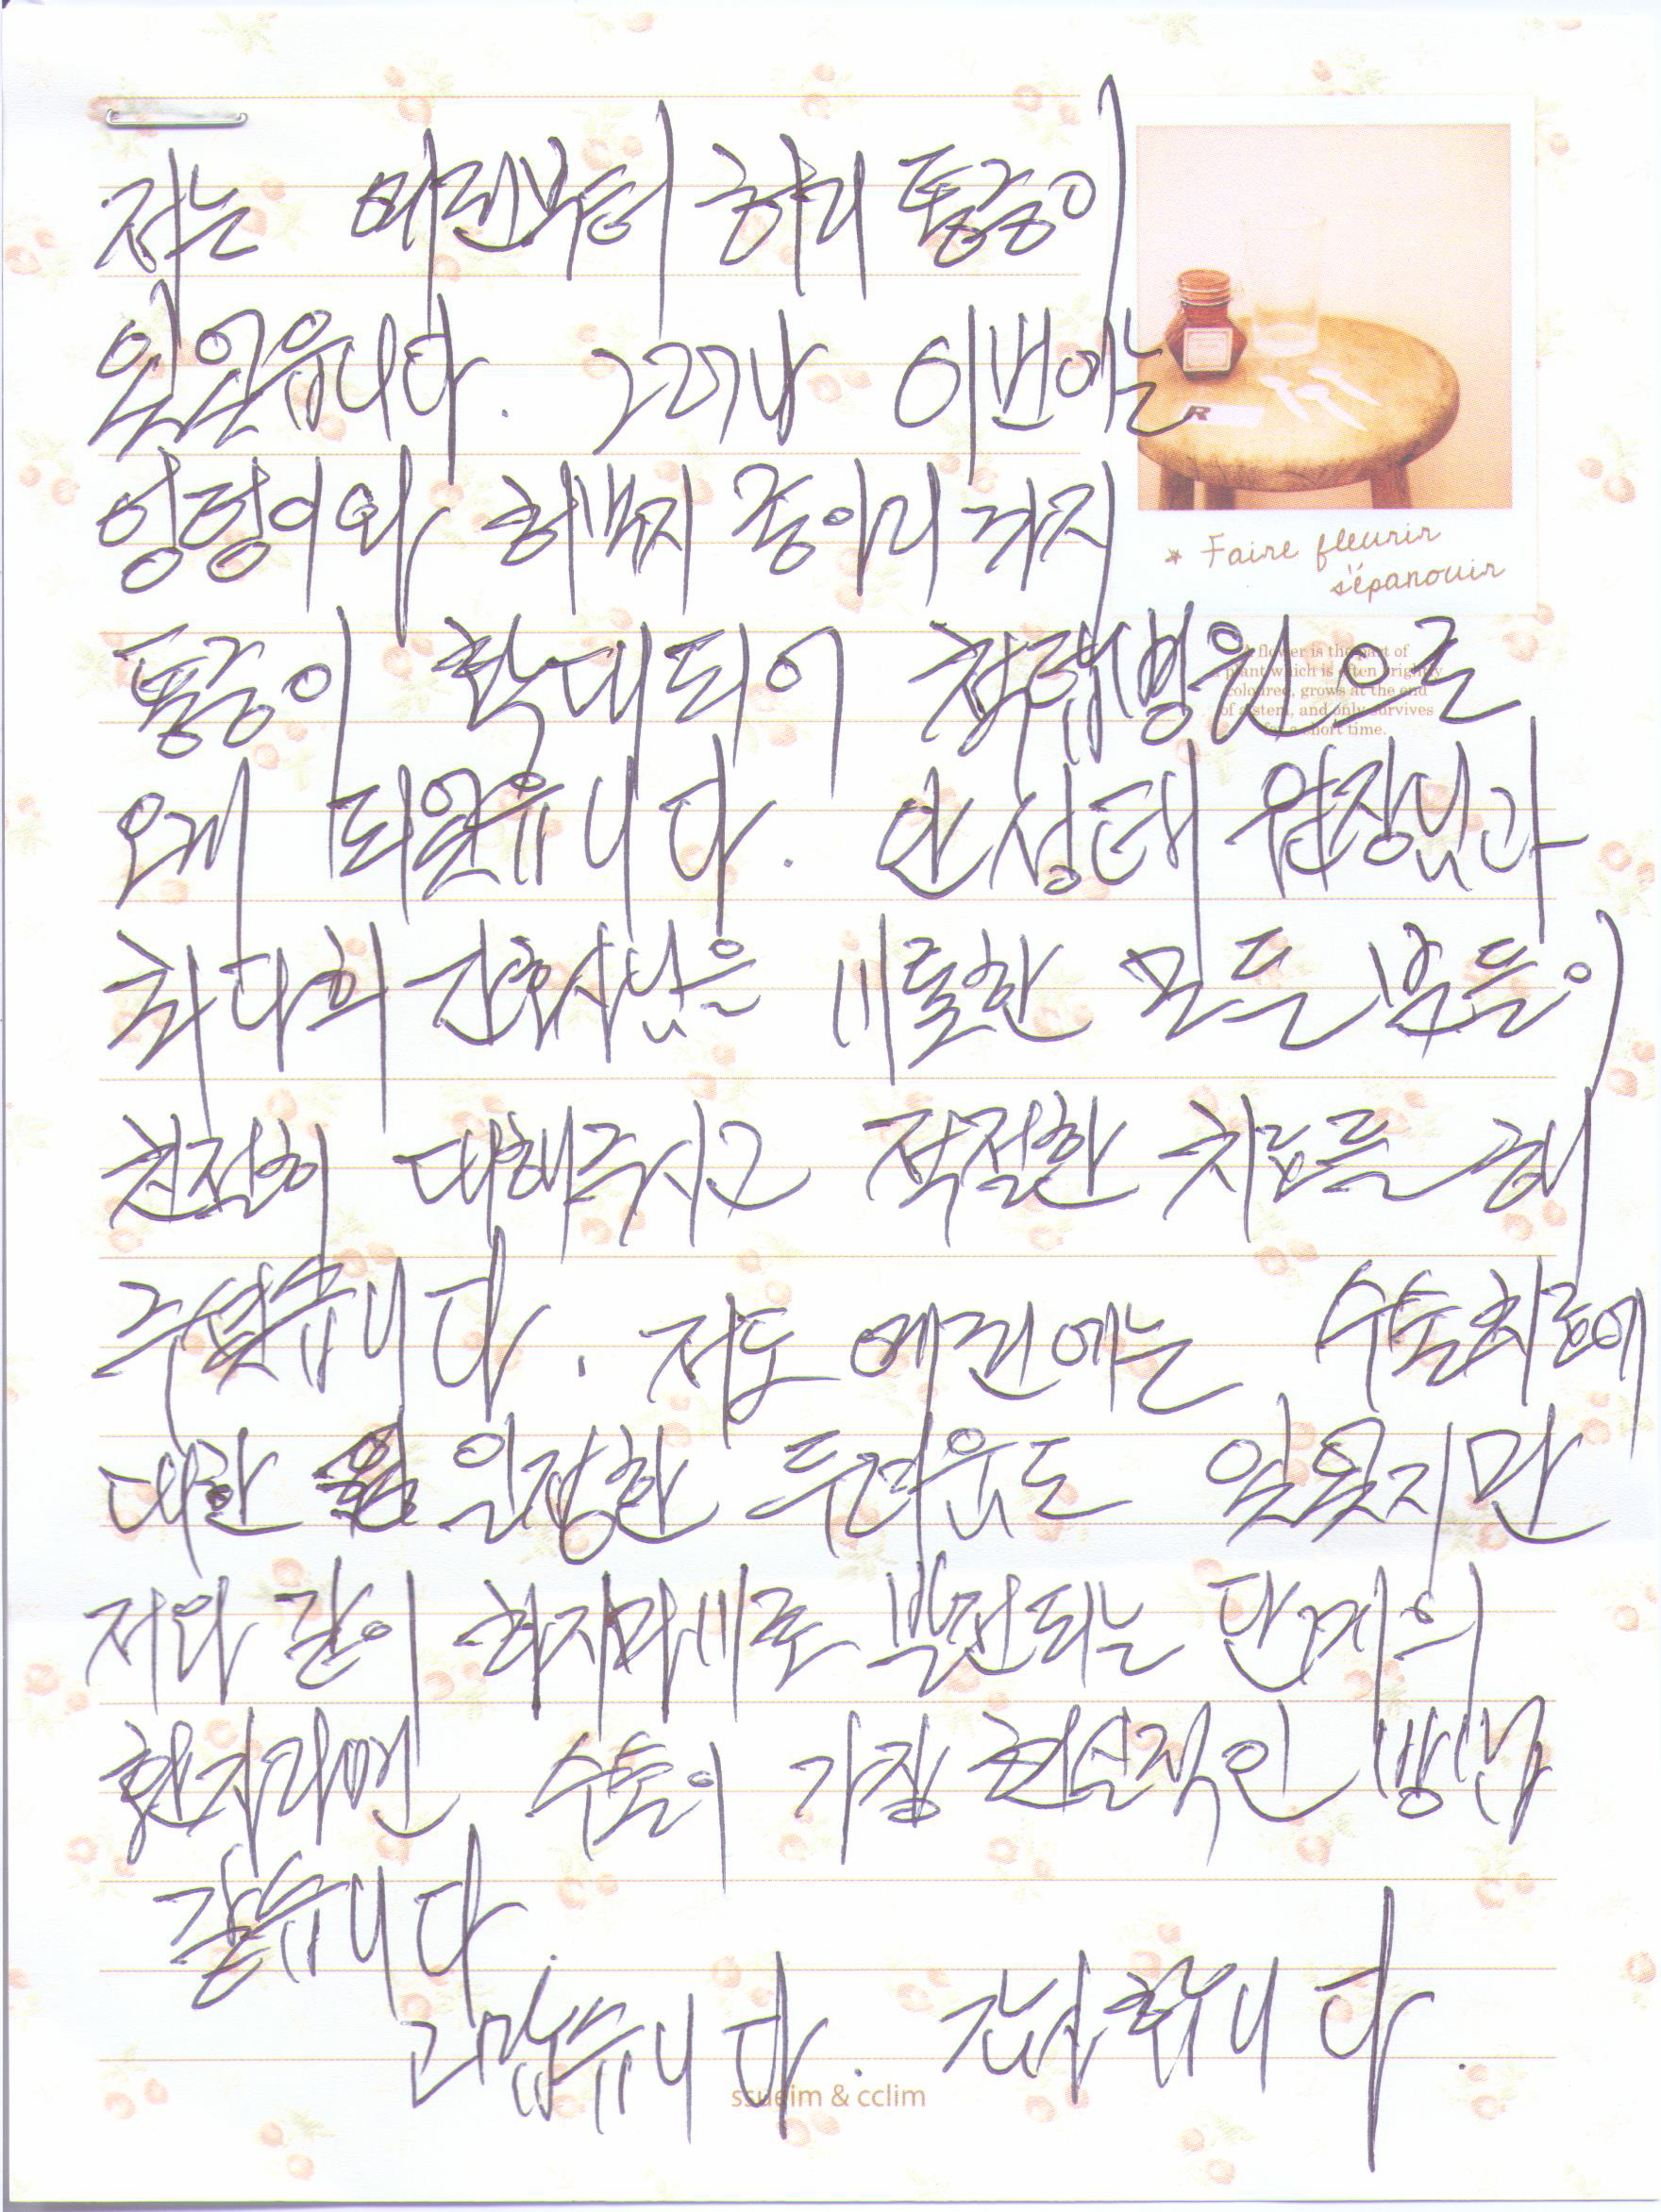 저는 예전부터 허리 통증이
있었습니다. 그러나 이번에는
엉덩이와 허벅지 종아리 까지
통증이 확대되어 척탑병원으로
오게 되었습니다. 안성태 원장님과
최다희 간호사님을 비롯한 모든 분들이
친절히 대해주시고 적절한 치료를 해
주셨습니다. 저도 예전에는 수술치료에
대한 일정한 두려움도 있었지만
저와 같이 하지마비로 발전되는 단계의
환자라면 수술이 가장 현실적인 방법
같습니다.
고맙습니다. 감사합니다.
* Faire fleurir
s'épanouir
A flower is the part of
plant which is often brightly
coloured, grows at the end
of a stem, and only survives
for a short time.
ssueim & cclim